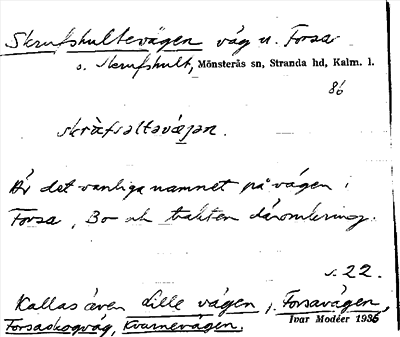 Skrufshultevägen väg n. Forsa
o. Skrufshult, Mönsterås sn, Stranda hd, Kalm. l.
86
skràfsaltəvæjən.
Är det vanliga namnet på vägen i
Forsa, Bo och trakten däromkring.
s. 22.
Kallas även Lille vägen, Forsavägen,
Forsaskogväg, Kvarnevägen.
Ivar Modéer 1936